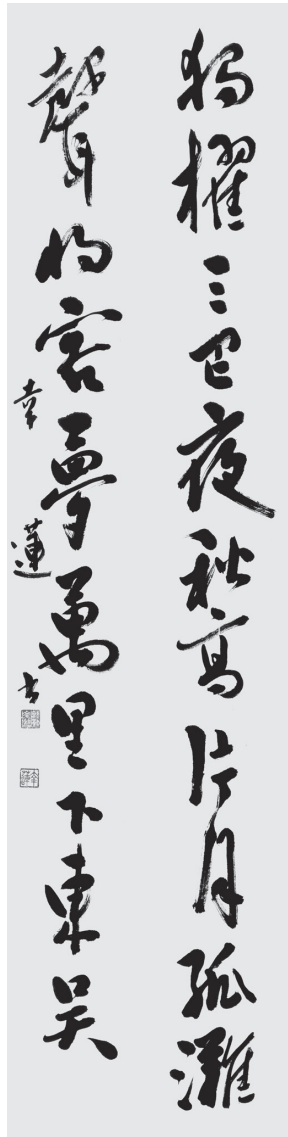 獨櫂三巴夜秋高片月孤灘
聲將客夢萬里下東吳
幸蓮書